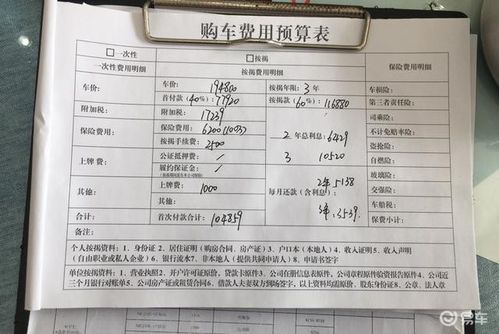 购车费用预算表
□一次性 □按揭
一次性费用明细 按揭费用明细 保险费用明细
车价: 车价: 194800 按揭年限: 3年 车损险:
首付款(40%): 77920 按揭款(60%): 116880 第三者责任险:
附加税: 附加税: 17239 司乘险:
保险费用: 保险费用: 6200 2年总利息: 6429 不计免赔率险:
按揭手续费: 2500 盗抢险:
上牌费: 公证抵押费: / 3 10520 自燃险:
履约保证金: / 玻璃险:
其他: 上牌费: 1000 每月还款(含利息): 2年 5138 交强险:
其他: 3年 3539 车船税:
合计: 首次付款合计: 104859 保费小计:
备注:
个人按揭资料:1、身份证 2、居住证明(购房合同、房产证)3、户口本(本地人)4、收入证明5、收入声明
(自由职业或私人企业)6、银行流水7、非本地人(提供共同申请人)8、申请书签字
单位按揭资料:1、营业执照2、开户许可证原价、贷款卡原件3、公司在册信息表原件、公司章程原件验资报告原件4、公司近
三个月银行对账单5、公司房产证或租赁合同6、借款人夫妻双方到场签字,以上资料均需原价、股东身份证8、公章、法人章
易车